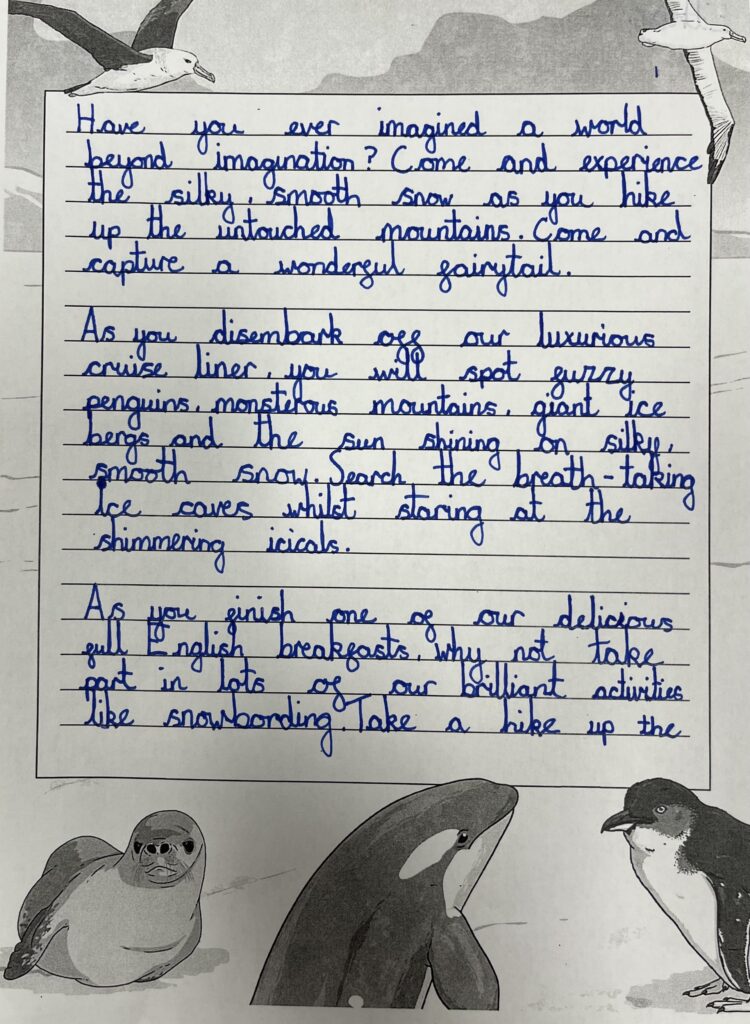 Have you ever imagined a world
beyond imagination? Come and experience
the silky, smooth snow as you hike
up the untouched mountains. Come and
capture a wonderful fairytail.
As you disembark off our luxurious
cruise liner, you will spot fuzzy
penguins, monsterous mountains, giant ice
bergs and the sun shining on silky,
smooth snow. Search the breath-taking
Ice caves whilst staring at the
shimmering icicals.
As you finish one of our delicious
full English breakfasts, why not take
part in lots of our brilliant activities
like snowbording. Take a hike up the